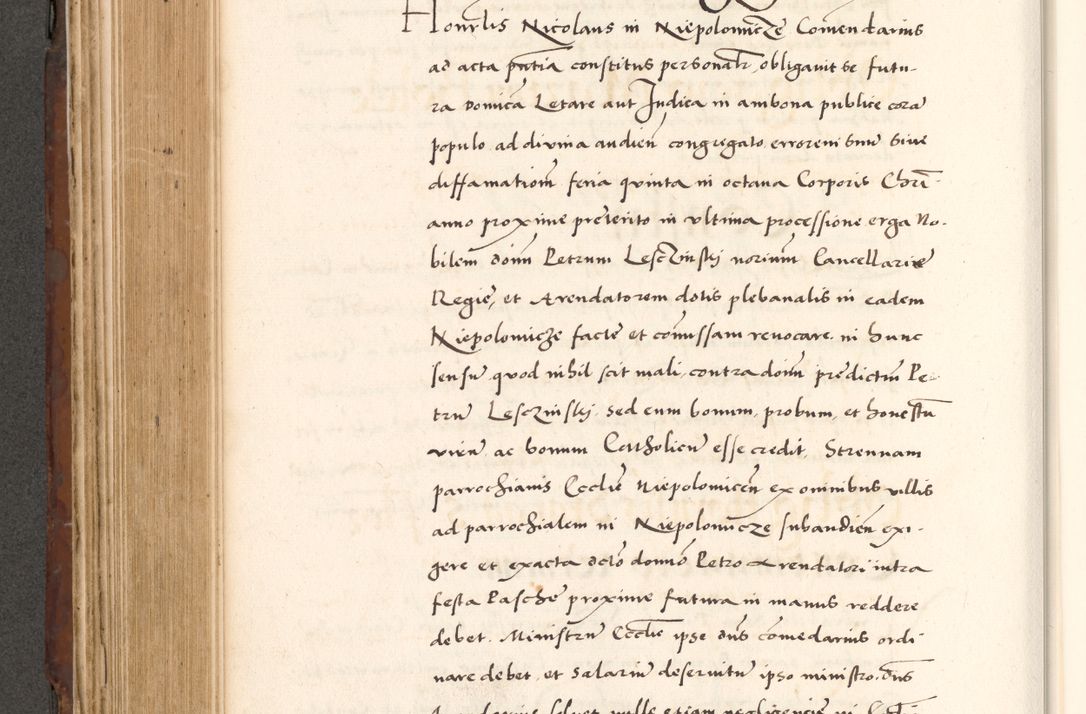 Honrlis Nicolaus in Niepolomicze Comendarius
ad acta pntia constitus personalr, obligauit se futu-
ra Domica Letare aut Judica in ambona publice cora
populo ad diuina audien congregato, errorem suu siue
diffamationm feria quinta in octaua Corporis Chri
anno proxime preterito in ultima processione erga No-
bilem domn Petrum Lesczinski notarium Cancellarie
Regie, et Arendatorem dotis plebanalis in eadem
Niepolomicze facte et comissam reuocare. in hunc
sensu quod nihil scit mali, contra domn predictm Pe-
tru Lesczinski, sed eum bonum, probum, et honestu
viru ac bonum Catholicu esse credit. Strennam
parrochianis Ecclie Niepolomicen ex omnibus villis
ad parrochialem in Niepolomicze subaudien exi-
gere et exacta dcto domno Petro Arendatori intra
festa Pasche proxime futura in manus reddere
debet. Ministru Ecclie ipse dns comedarius ordi
nare debet, et salariu deseruitu ipso ministro. dns
Arendarius soluet nulle etiam negligencie in